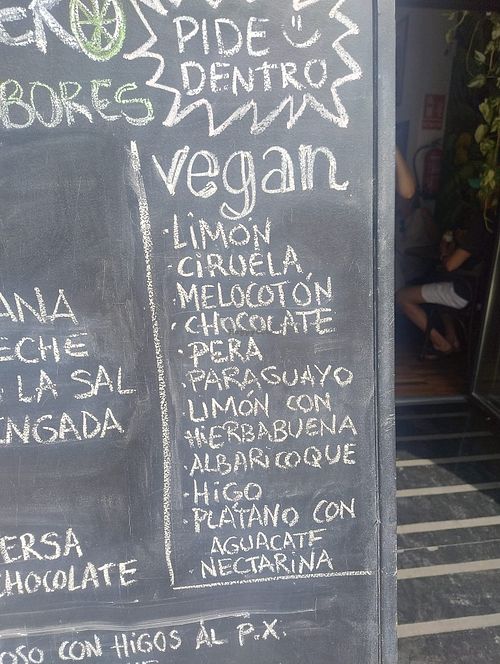 PIDE
DENTRO
BORES
vegan
·LIMÓN
·CIRUELA
·MELOCOTÓN
·CHOCOLATE
·PERA
·PARAGUAYO
LIMÓN CON
·HIERBABUENA
·ALBARICOQUE
·HIGO
·PLÁTANO CON
AGUACATE
·NECTARINA
ANA
ECHE
LA SAL
ENGADA
ERSA
CHOCOLATE
OSO CON HIGOS AL P.X.